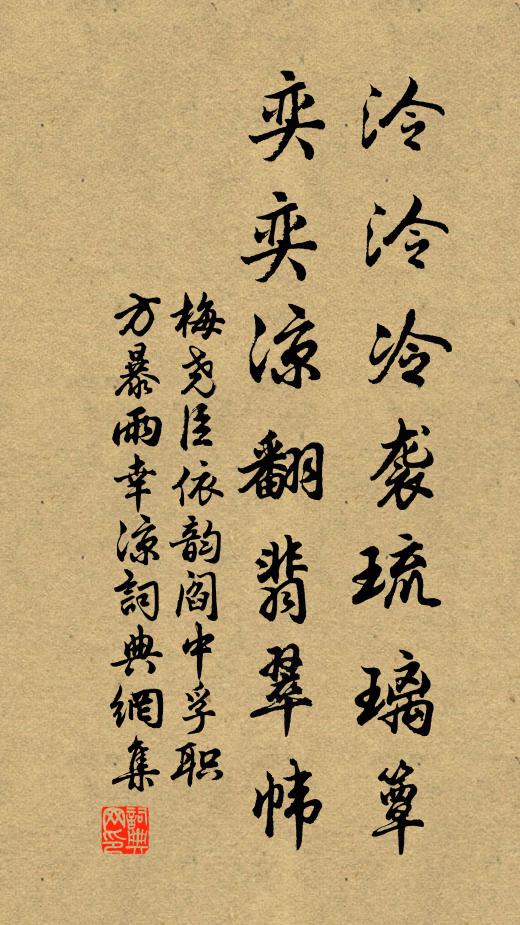 泠泠冷袭琉璃簟
奕奕凉翻翡翠帏
梅尧臣依韵阎中孚职
方暴雨幸凉詞典網集
詞典
网印